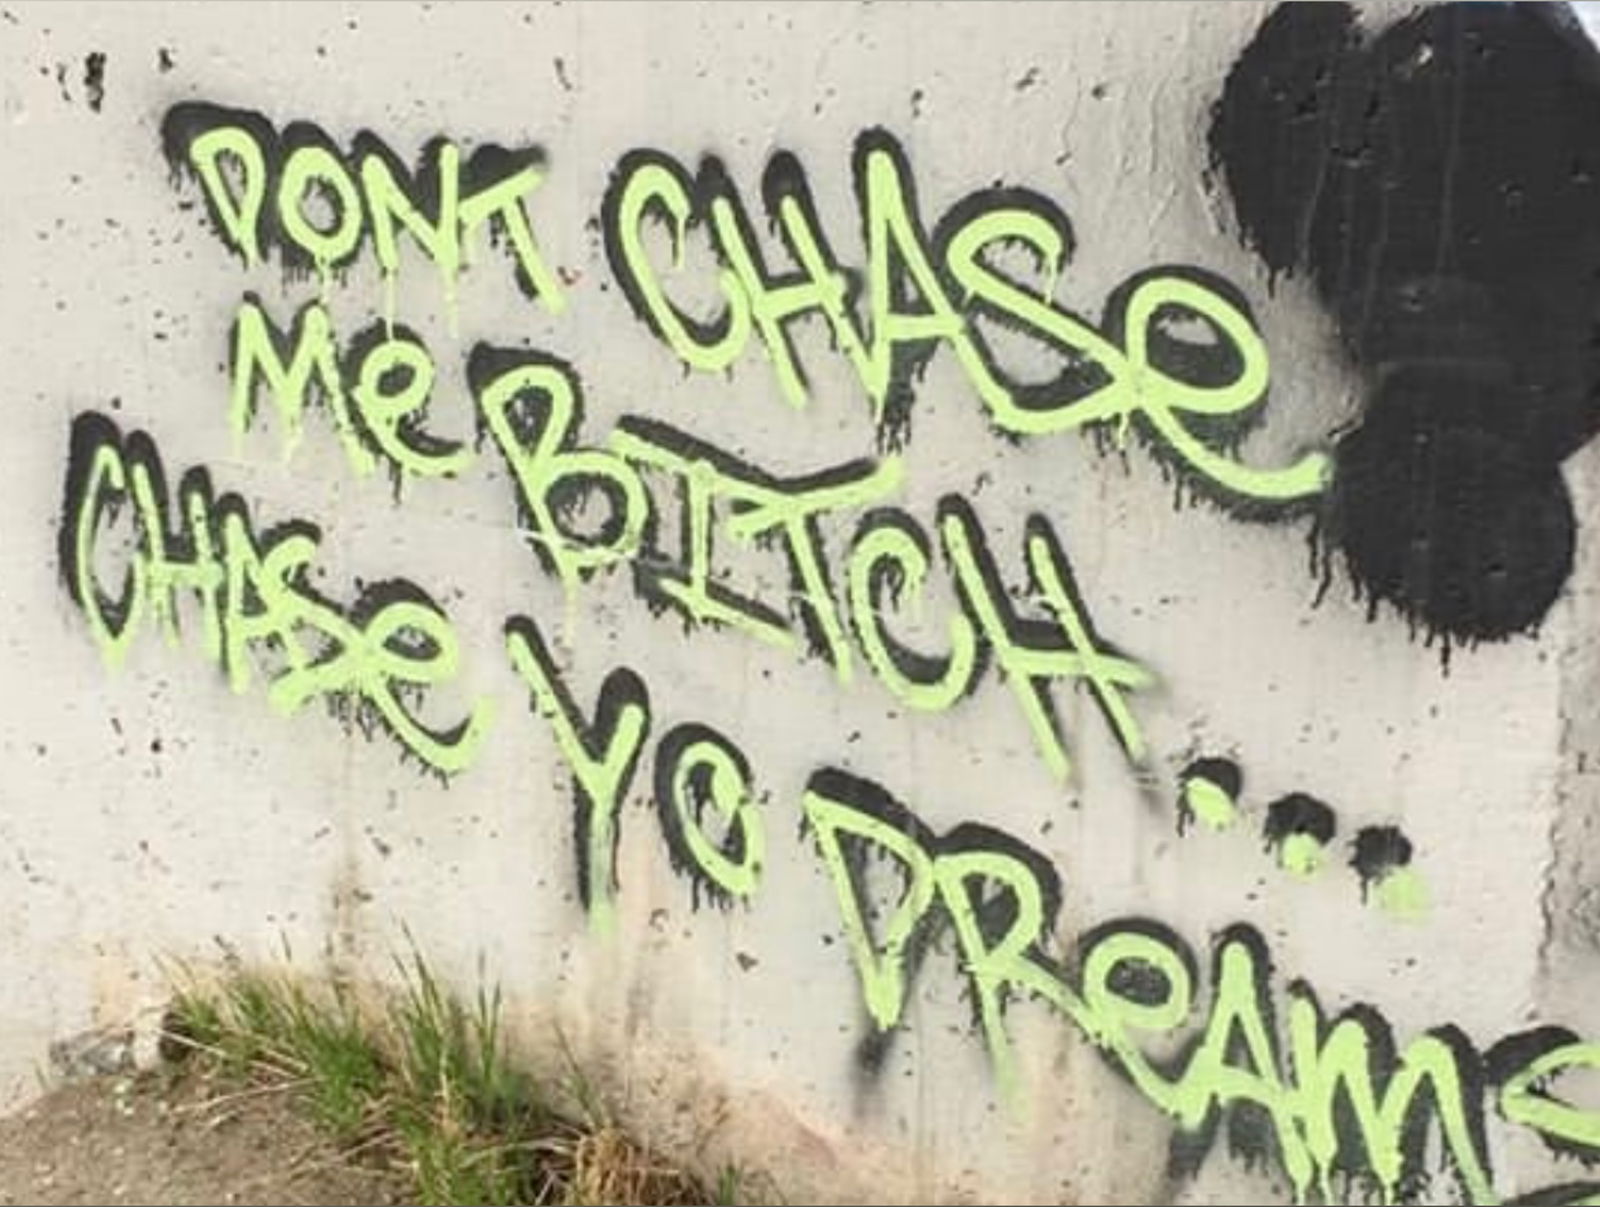 DONT CHASe
Me BITCH...
CHASe YO DReAMS